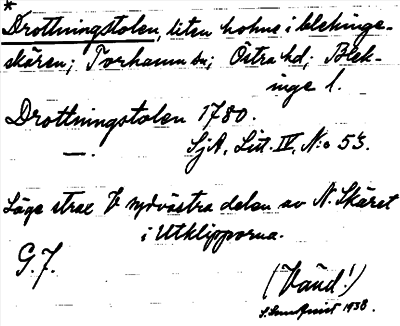 *
Drottningstolen, liten holme i blekinge-
skären; Torhamn sn; Östra hd; Blek-
inge l.
Drottningstolen 1780.
—. SjA, Litt. IV, N:o 53.
Läge strax V sydvästra delen av N. Skäret
i Utklipporna.
G. F.
(Vänd!)
1938.